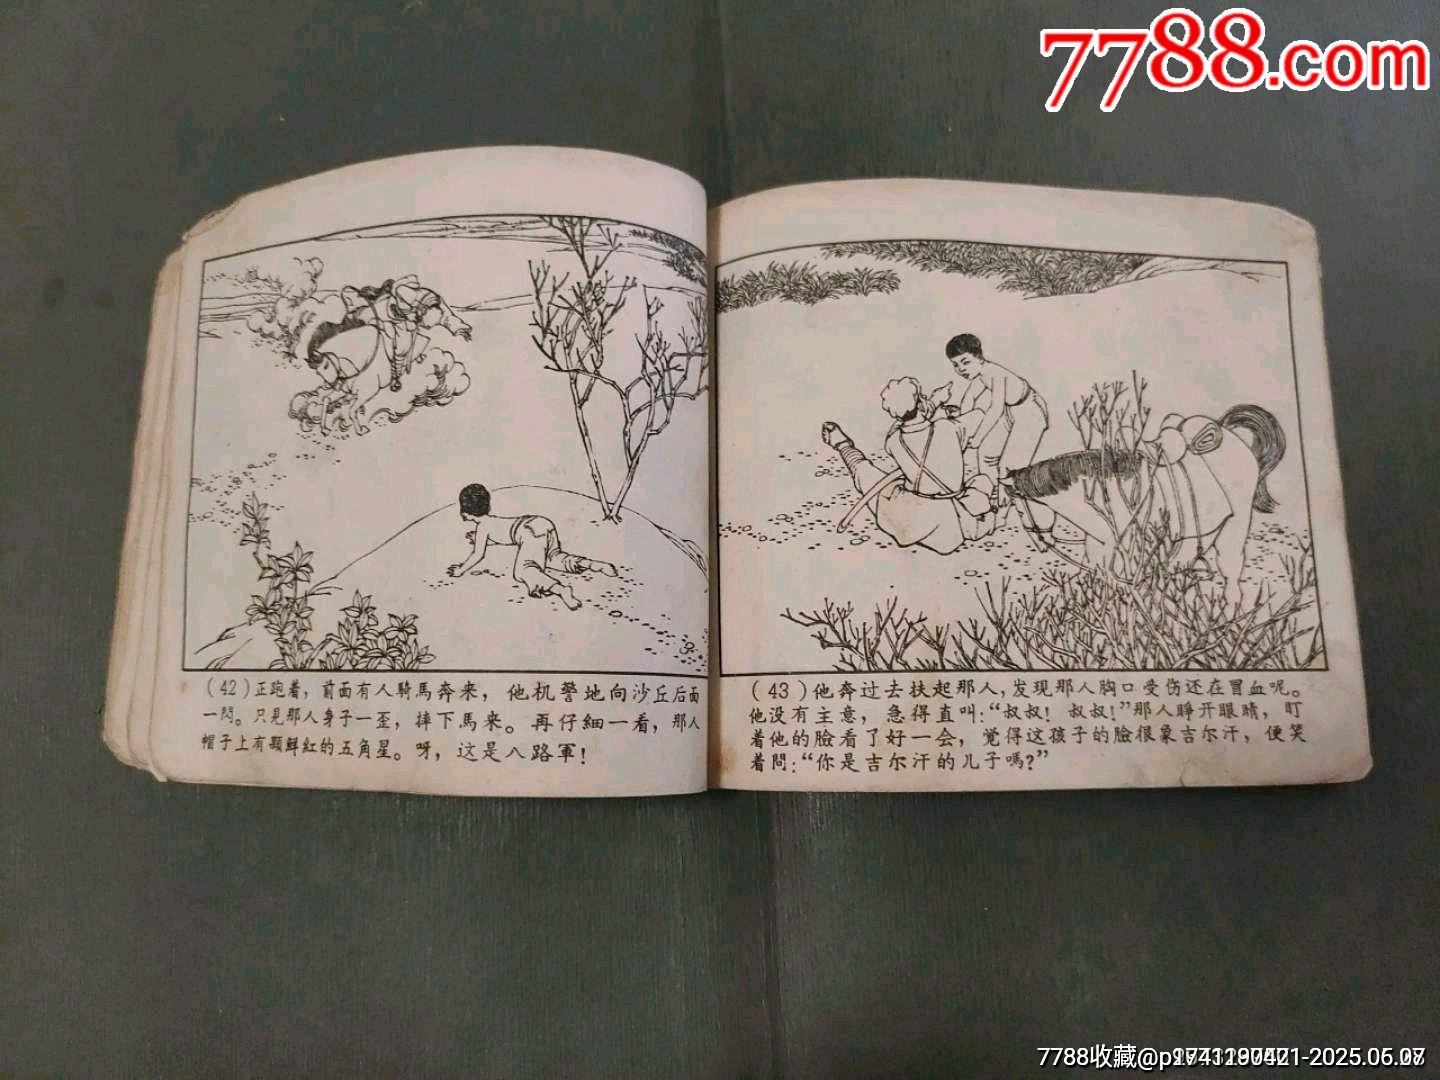 7788.com
(42)正跑着，前面有人騎馬奔来，他机警地向沙丘后面
一閃。只見那人身子一歪，摔下馬来。再仔細一看，那人
帽子上有顆鮮紅的五角星。呀，这是八路軍！
(43)他奔过去扶起那人，发现那人胸口受伤还在冒血呢。
他没有主意，急得直叫：“叔叔！叔叔！”那人睁开眼睛，盯
着他的臉看了好一会，覚得这孩子的臉很象吉尔汗，便笑
着問：“你是吉尔汗的儿子嗎？”
7788收藏@p